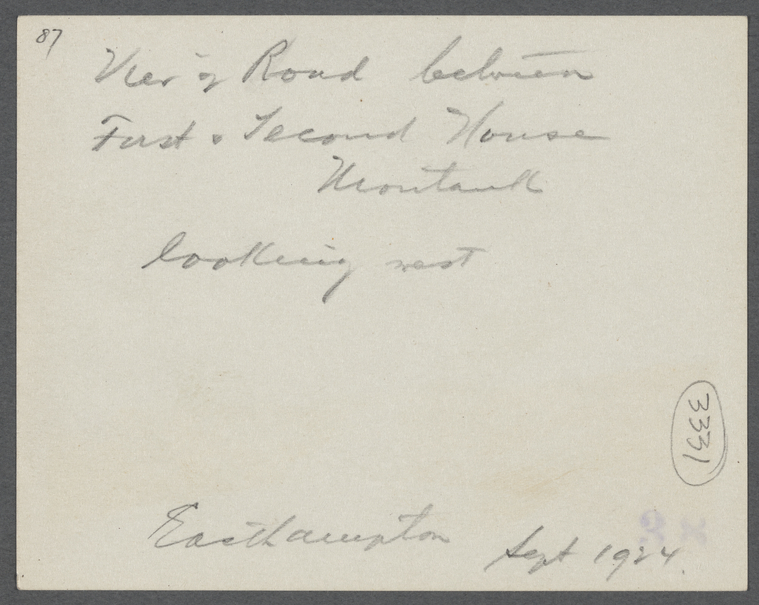 87
View of Road between
First & Second House
Montauk
looking west
3331
Easthampton Sept 1924.